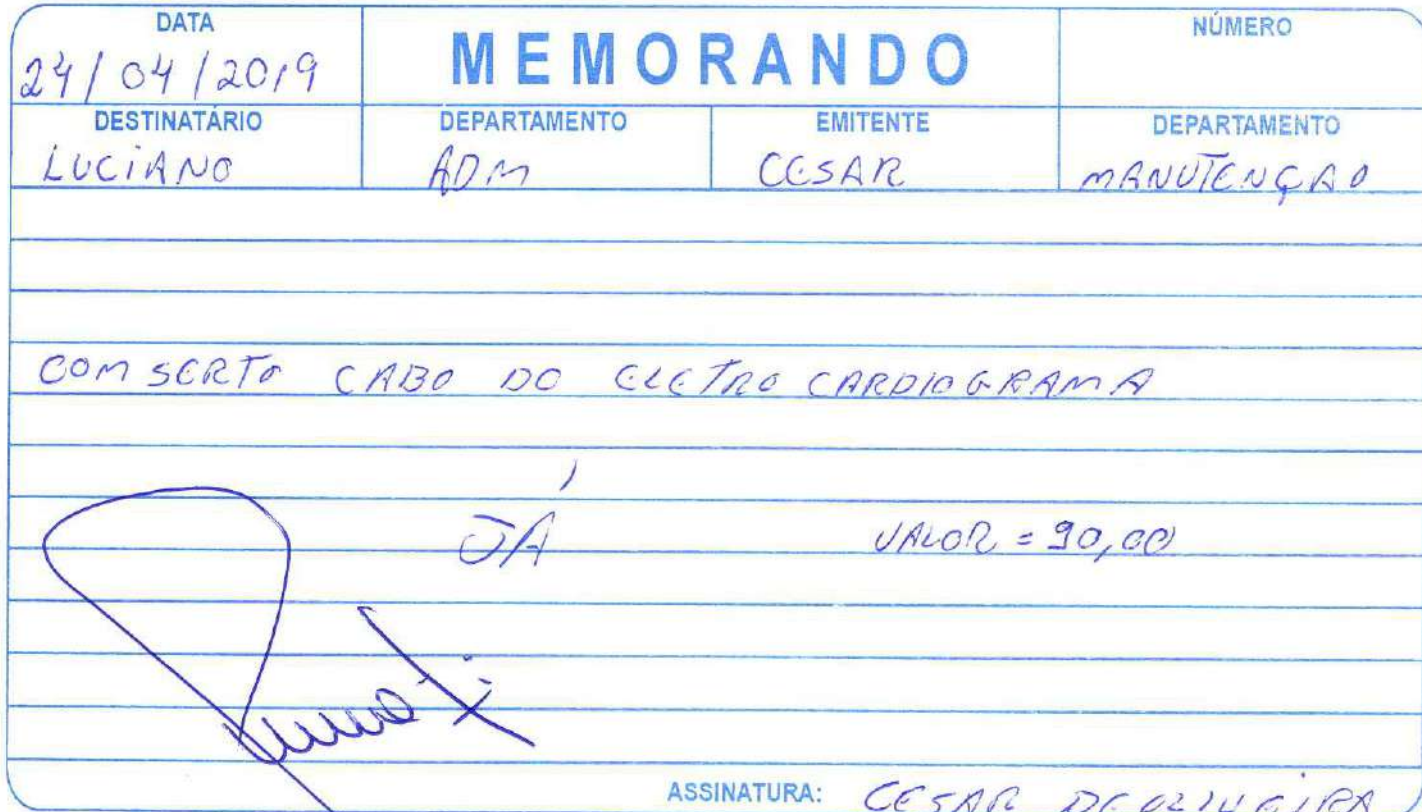 DATA
24/04/2019
MEMORANDO
NÚMERO
DESTINATÁRIO
LUCIANO
DEPARTAMENTO
ADM
EMITENTE
CESAR
DEPARTAMENTO
MANUTENÇAO
COMSERTO CABO DO ELETRO CARDIOGRAMA
JÁ
VALOR = 90,00
ASSINATURA: CESAR DE OLIVEIRA